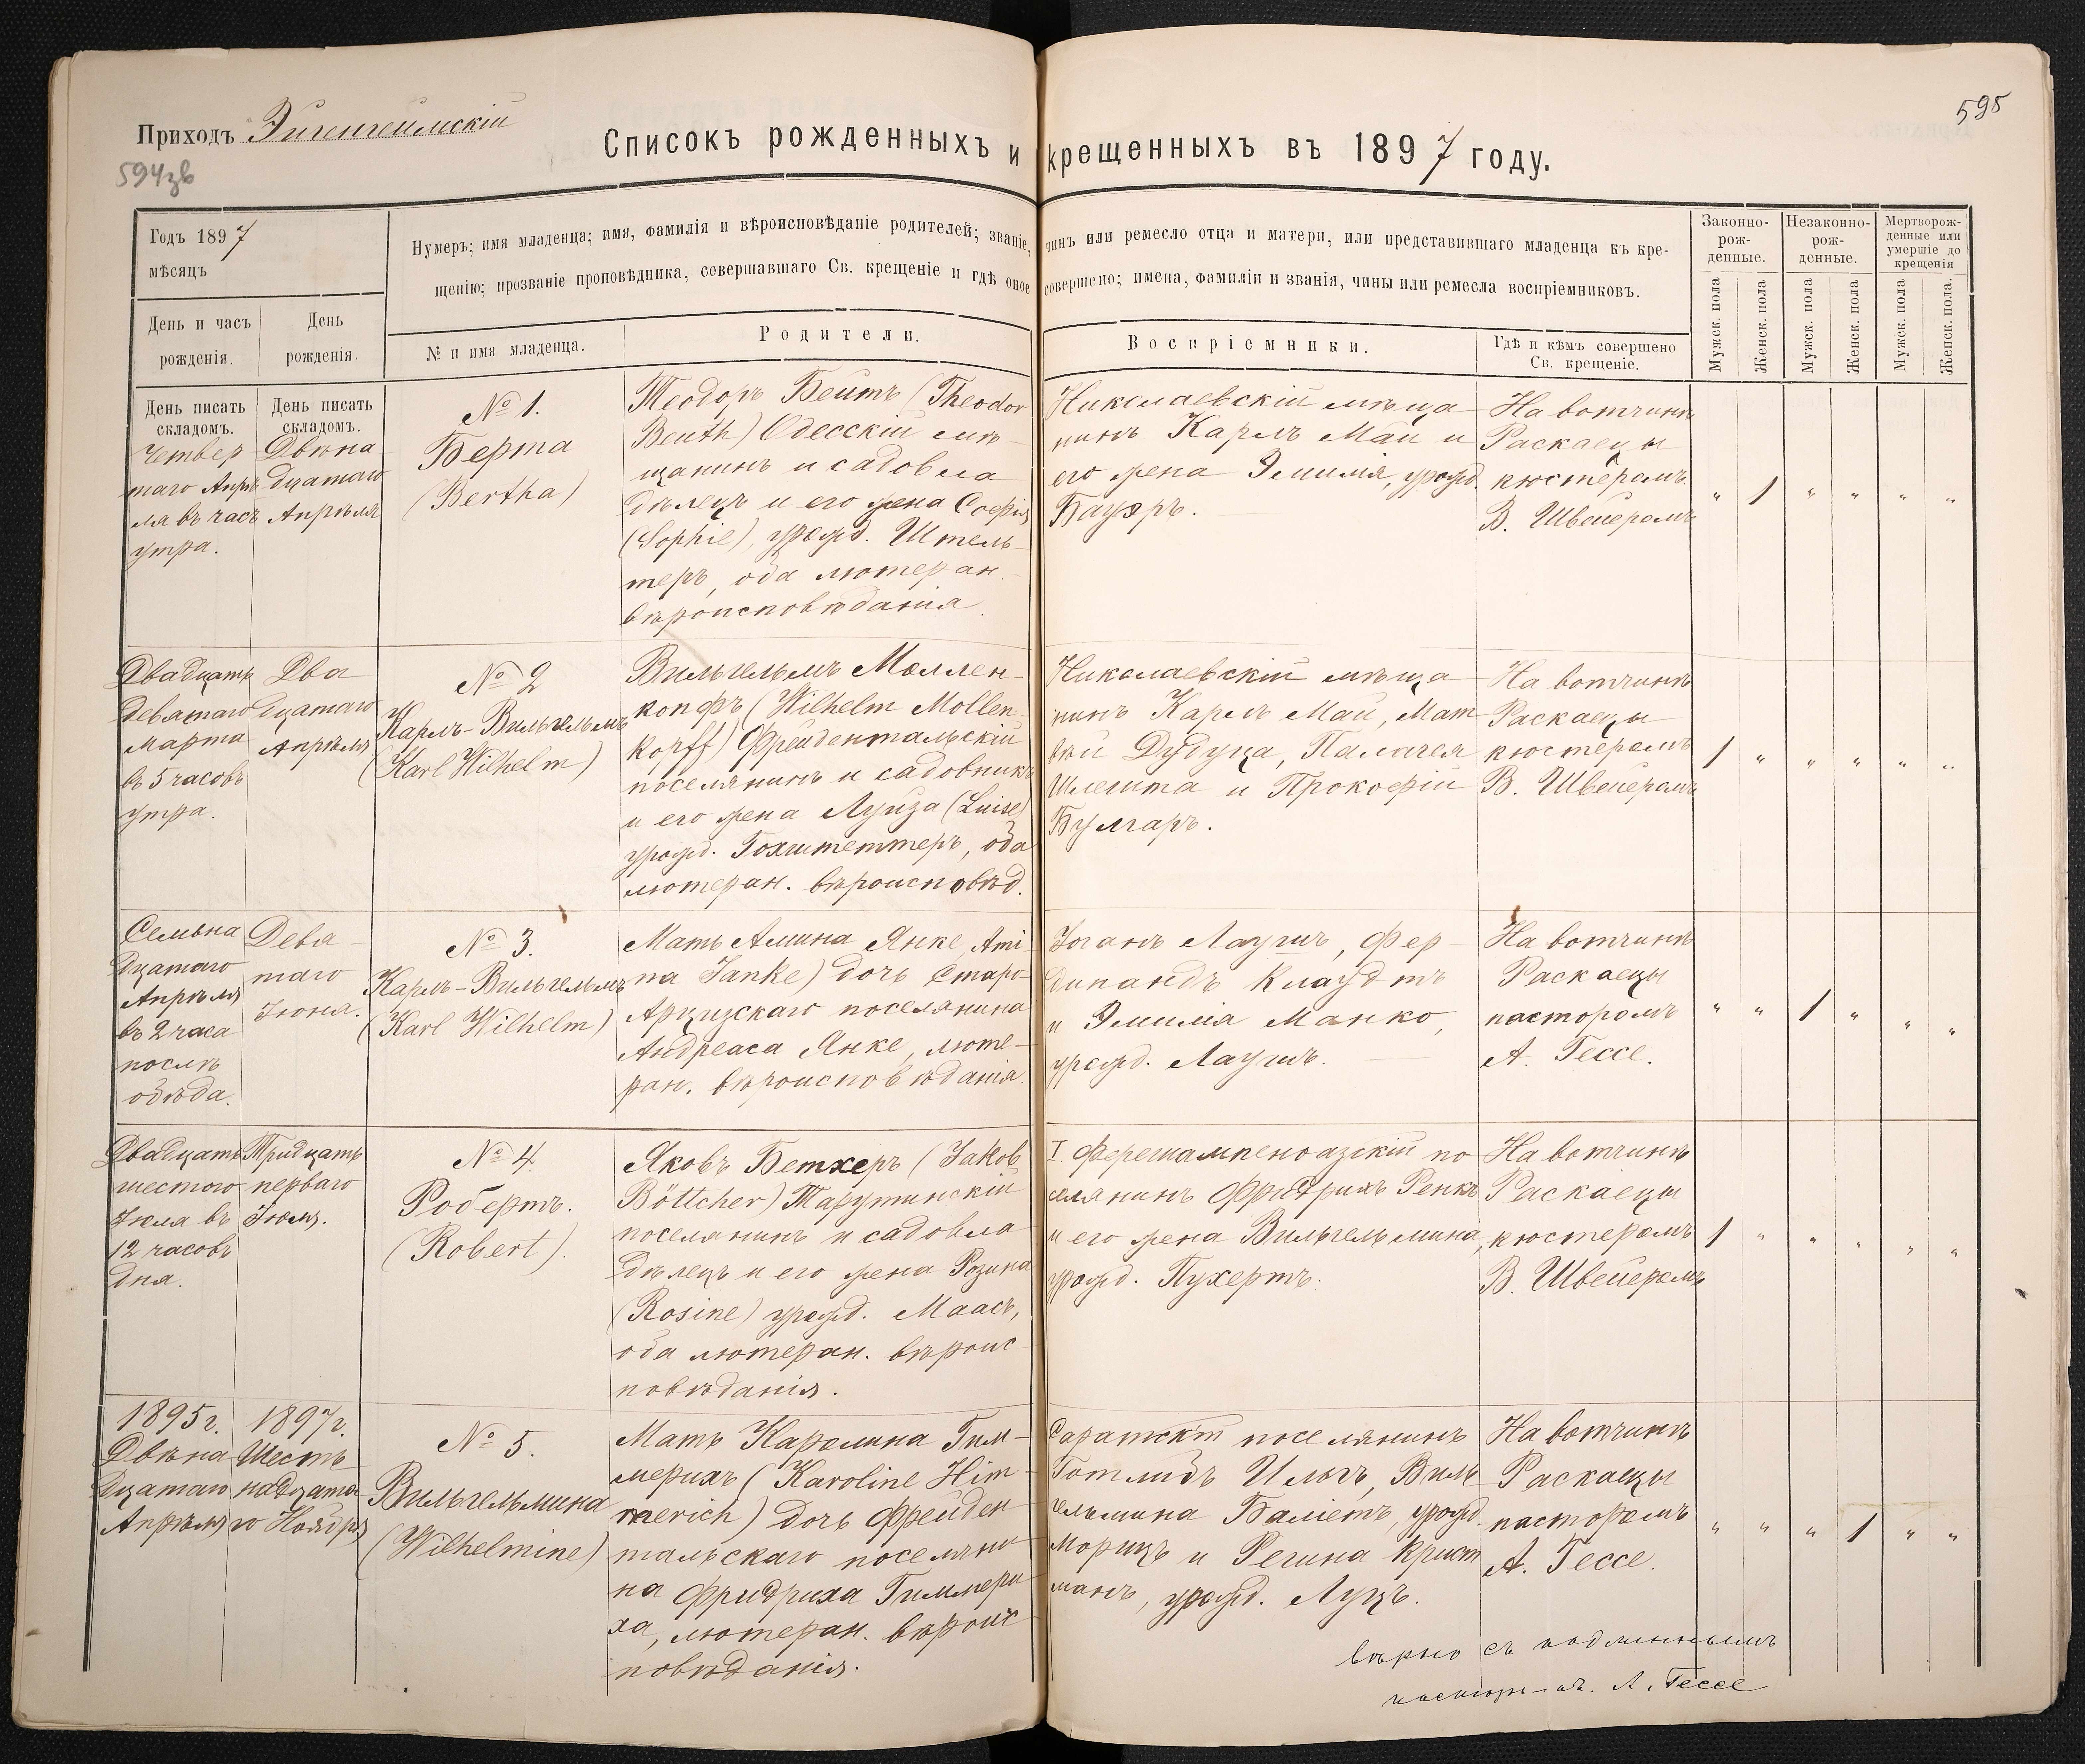 Приходъ Эйгенгеймскій
594зв
595
Списокъ рожденныхъ и крещенныхъ въ 1897 году.
Годъ 1897
мѣсяцъ
День и часъ
рожденія.
День
рожденія.
Нумеръ; имя младенца; имя, фамилія и вѣроисповѣданіе родителей; званіе, чинъ или ремесло отца и матери, или представившаго младенца къ кре-
щенію; прозваніе проповѣдника, совершавшаго Св. крещеніе и гдѣ оное совершено; имена, фамиліи и званія, чины или ремесла воспріемниковъ.
№ и имя младенца.
Родители.
Воспріемники.
Гдѣ и кѣмъ совершено
Св. крещеніе.
Законно-
рож-
денные.
Незаконно-
рож-
денные.
Мертворож-
денные или
умершіе до
крещенія
Мужск. пола
Женск. пола
Мужск. пола
Женск. пола
Мужск. пола
Женск. пола.
День писать
складомъ.
Четвер
таго Апрѣ
ля въ часъ
утра.
День писать
складомъ.
Двѣна
дцатаго
Апрѣля
№ 1.
Берта
(Bertha)
Теодоръ Бейтъ (Theodor
Beuth) Одесскій мѣ-
щанинъ и садовла
дѣлецъ и его жена Софія
(Sophie), урожд. Штель-
теръ, оба лютеран.
вѣроисповѣданія.
Николаевскій мѣща
нинъ Карлъ Май и
его жена Эмилія, урожд.
Бауэръ.
На вотчинѣ
Раскаецы
кюстеромъ
В. Швейеромъ
" 1 " " " "
Двадцать
девятаго
марта
въ 5 часовъ
утра.
Два
дцатаго
Апрѣля
№ 2
Карлъ-Вильгельмъ
(Karl Wilhelm)
Вильгельмъ Моллен-
копфъ (Wilhelm Mollen-
kopff) Фрейдентальскій
поселянинъ и садовникъ
и его жена Луиза (Luise)
урожд. Гохштеттеръ, оба
лютеран. вѣроисповѣд.
Николаевскій мѣща
нинъ Карлъ Май, Мат
вѣй Дудуца, Палагея
Шлегита и Прокофій
Булгаръ.
На вотчинѣ
Раскаецы
кюстеромъ
В. Швейеромъ
1 " " " " "
Семьна
дцатаго
Апрѣля
въ 2 часа
послѣ
обѣда.
Девя-
таго
Іюня.
№ 3.
Карлъ-Вильгельмъ
(Karl Wilhelm)
Мать Амина Янке (Ami-
na Janke) дочь Старо-
Арцизскаго поселянина
Андреаса Янке, люте-
ран. вѣроисповѣданія.
Іоганъ Лаушъ, Фер-
динандъ Клаудтъ
и Эмилія Манко,
урожд. Лаушъ.
На вотчинѣ
Раскаецы
пасторомъ
А. Гессе.
" " 1 " " "
Двадцать
шестого
Іюля въ
12 часовъ
дня.
Тридцать
перваго
Іюля.
№ 4.
Робертъ.
(Robert).
Яковъ Бетхеръ (Jakob
Böttcher) Тарутинскій
поселянинъ и садовла
дѣлецъ и его жена Розина
(Rosine) урожд. Маасъ,
оба лютеран. вѣроис
повѣданія.
I. Ферешампеноазскій по
селянинъ Фридрихъ Ренкъ
и его жена Вильгельмина,
урожд. Пухертъ.
На вотчинѣ
Раскаецы
кюстеромъ
В. Швейеромъ
1 " " " " "
1895 г.
Двѣна
дцатаго
Апрѣля
1897 г.
Шесть
надцата
го Ноября
№ 5.
Вильгельмина
(Wilhelmine)
Мать Каролина Гим-
мерихъ (Karoline Him-
merich) дочь Фрейден
тальскаго поселяни
на Фридриха Гиммери
ха, лютеран. вѣроис
повѣданія.
Саратскій поселянинъ
Готлибъ Ильгъ, Виль
гельмина Баліетъ, урожд.
Морицъ и Регина Крист
манъ, урожд. Луцъ.
На вотчинѣ
Раскаецы
пасторомъ
А. Гессе.
" " " 1 " "
Вѣрно съ подлиннымъ
А. Гессе